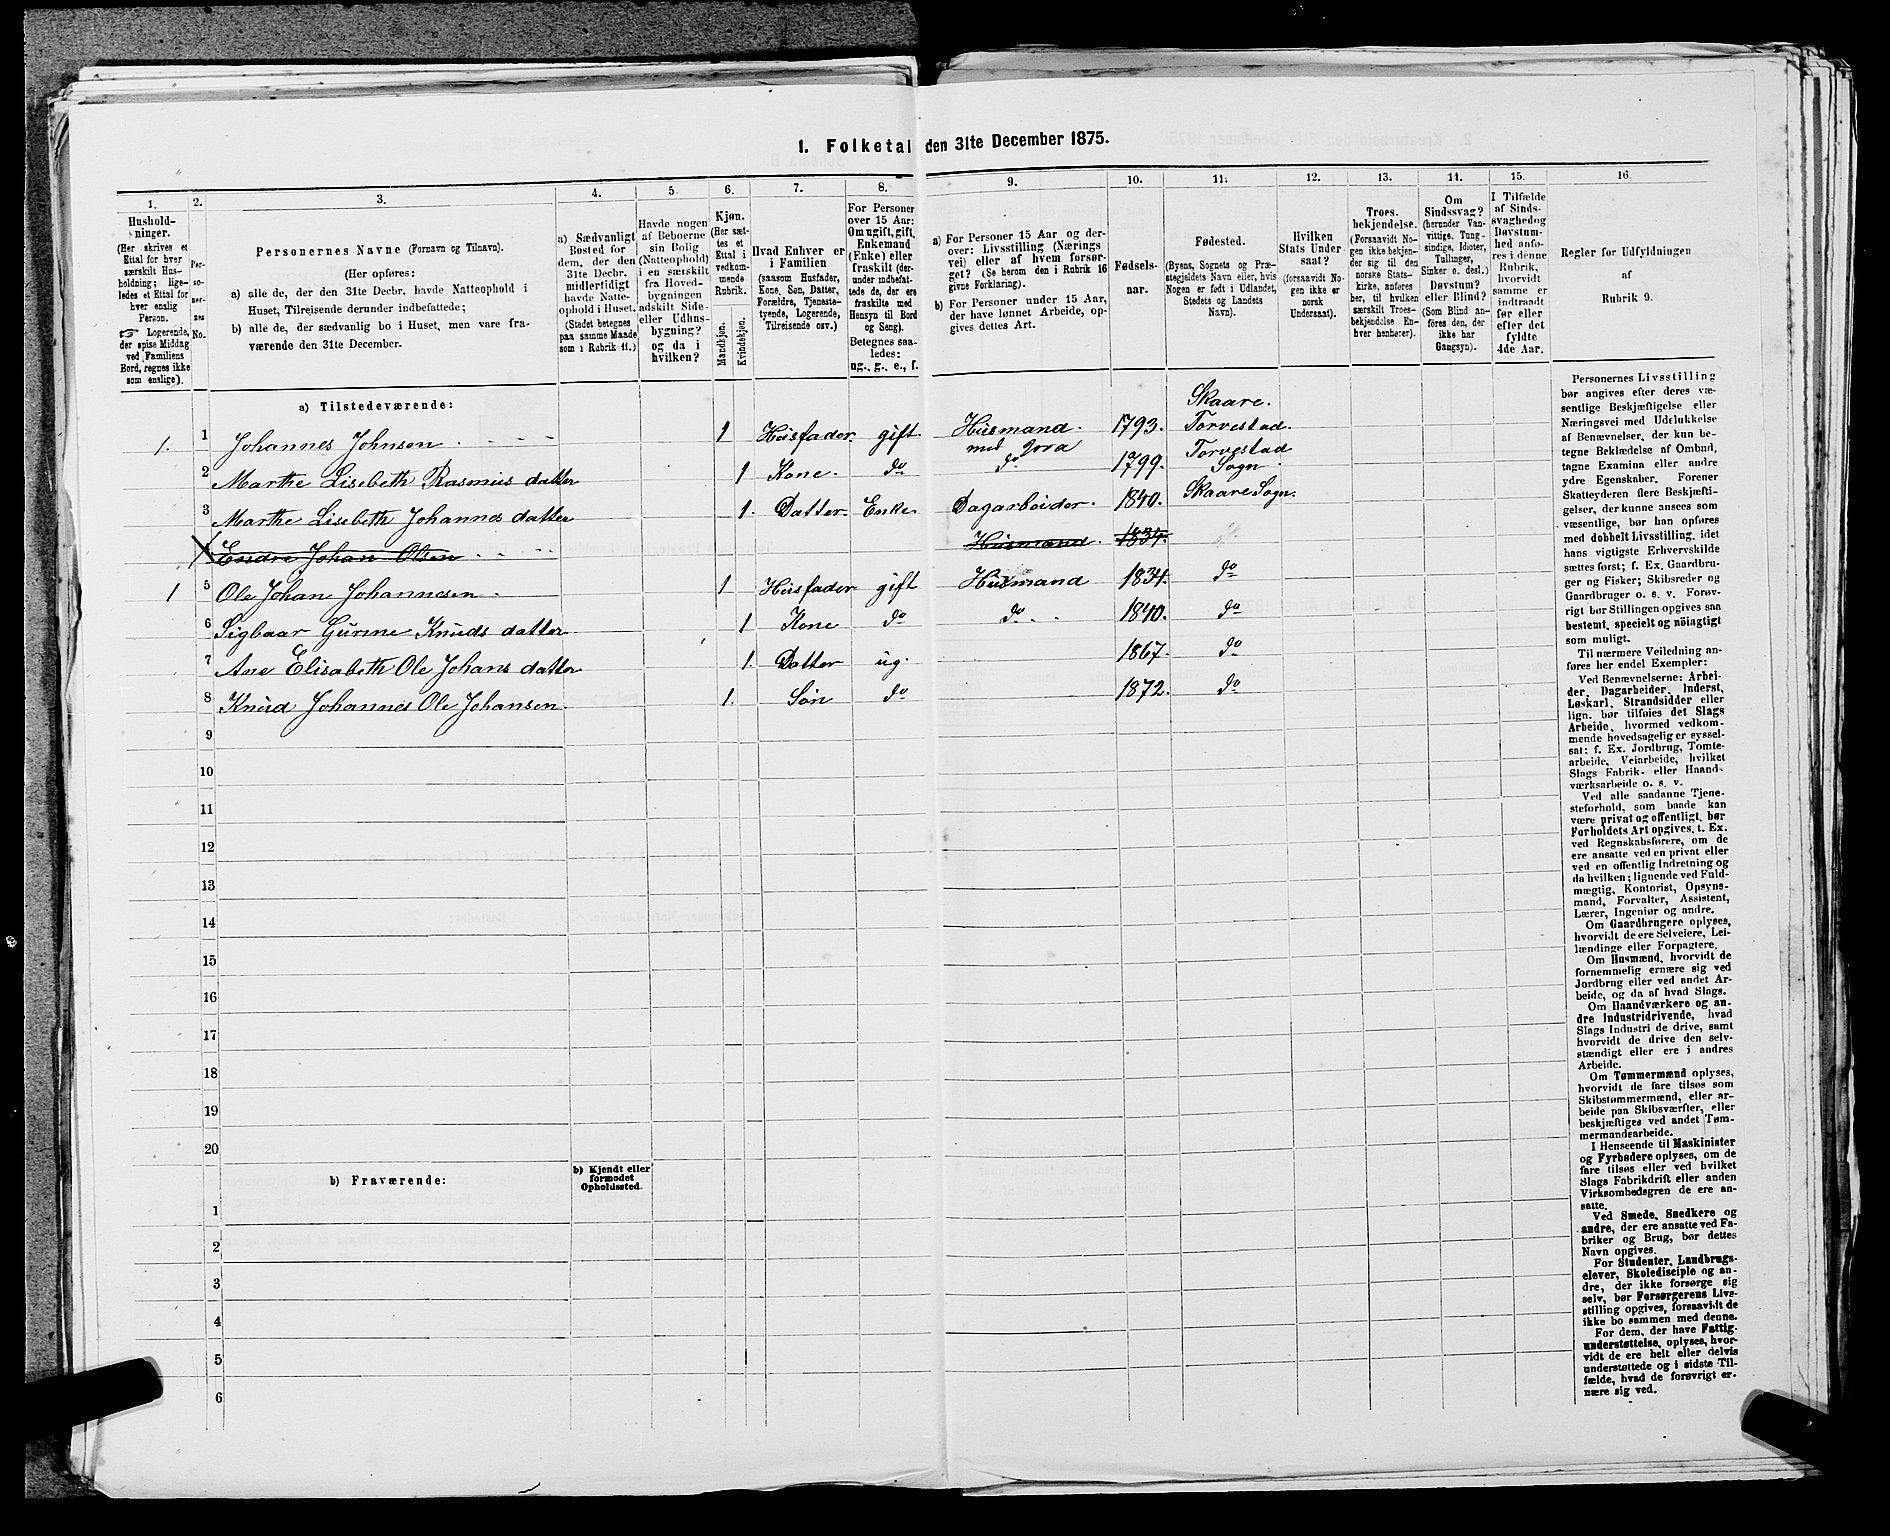 1. Folketal den 31te December 1875.
1. 2. 3. 4. 5. 6. 7. 8. 9. 10. 11. 12. 13. 14. 15. 16.
Hushold-
ninger.
(Her skrives et
Ettal for hver
særskilt Hus-
holdning; lige-
ledes et Ettal for
hver enslig
Person.
☞ Logerende,
der spise Middag
ved Familiens
Bord, regnes ikke
som enslige).
Per-
so-
ner-
nes
No.
Personernes Navne (Fornavn og Tilnavn).
(Her opføres:
a) alle de, der den 31te Decbr. havde Natteophold i
Huset, Tilreisende derunder indbefattede;
b) alle de, der sædvanlig bo i Huset, men vare fra-
værende den 31te December.
a) Sædvanligt
Bosted for
dem, der den
31te Decbr.
midlertidigt
havde Natte-
ophold i Huset.
(Stedet betegnes
paa samme Maade
som i Rubrik 11.)
Havde nogen
af Beboerne
sin Bolig
(Natteophold)
i en særskilt
fra Hoved-
bygningen
adskilt Side-
eller Udhus-
bygning?
og da i
hvilken?
Kjøn.
(Her sæt-
tes et
Ettal i
vedkom-
mende
Rubrik.
Mandkjøn.
Kvindekjøn.
Hvad Enhver er
i Familien
(saasom Husfader,
Kone, Søn, Datter,
Forældre, Tjeneste-
tyende, Logerende,
Tilreisende osv.)
For Personer
over 15 Aar:
Om ugift, gift,
Enkemand
(Enke) eller
fraskilt (der-
under indbefat-
tede de, der ere
fraskilte med
Hensyn til Bord
og Seng).
Betegnes saa-
ledes:
ug., g., e., f.
a) For Personer 15 Aar og der-
over: Livsstilling (Nærings
vei) eller af hvem forsør-
get? (Se herom den i Rubrik 16
givne Forklaring).
b) For Personer under 15 Aar,
der have lønnet Arbeide, op-
gives dettes Art.
Fødsels-
aar.
Fødested.
(Byens, Sognets og Præ-
stegjeldets Navn eller, hvis
Nogen er født i Udlandet,
Stedets og Landets
Navn).
Hvilken
Stats Under
saat?
(forsaavidt No-
gen ikke er
norsk
Undersaat).
Troes-
bekjendelse.
(Forsaavidt No-
gen ikke bekjen-
der sig til den
norske Stats-
kirke, anføres
her, til hvilken
særskilt Troes-
bekjendelse En-
hver henhører).
Om
Sindssvag?
(herunder Van-
vittige, Tung-
sindige, Idioter,
Tullinger,
Sinker o. desl.)
Døvstum?
eller Blind?
(Som Blind an-
føres den, der
ikke har
Gangsyn).
I Tilfælde
af Sinds-
svaghedog
Døvstum-
hed anfø-
res i denne
Rubrik,
hvorvidt
samme er
indtraadt
før eller
efter det
fyldte
4de Aar.
Regler for Udfyldningen
af
Rubrik 9.
a) Tilstedeværende:
Skaare.
1. 1 Johannes Johnsen 1 Husfader gift Husmand. 1793. Torvestad.
med Jord Torvestad
2 Marthe Lisebeth Rasmus datter 1 Kone. do do 1799. Sogn
3 Marthe Lisebeth Johannes datter 1. Datter. Enke. Dagarbeider. 1840. Skaare Sogn.
Endre Johan Olsen Husmand. 1834.
1 5 Ole Johan Johannesen. 1 Husfader gift Husmand 1834. do
6 Sigbaar Gurine Knuds datter 1 Kone do do 1840. do
7 Ane Elisabeth Ole Johans datter 1. Datter ug. 1867. do
8 Knud Johannes Ole Johansen. 1. Søn do 1872. do
9
10
11
12
13
14
15
16
17
18
19
20
b) Fraværende:
b) Kjendt eller
formodet
Opholdssted.
1
2
3
4
5
6
Personernes Livsstilling
bør angives efter deres væ-
sentlige Beskjæftigelse eller
Næringsvei med Udelukkelse
af Benævnelser, der kun be-
tegne Beklædelse af Ombud,
tagne Examina eller andre
ydre Egenskaber. Forener
Skatteyderen flere Beskjæfti-
gelser, der kunne ansees som
væsentlige, bør han opføres
med dobbelt Livsstilling, idet
hans vigtigste Erhvervskilde
sættes først; f. Ex. Gaardbru-
ger og Fisker; Skibsreder og
Gaardbruger o. s. v. Forøv-
rigt bør Stillingen opgives saa
bestemt, specielt og nöiagtigt
som muligt.
Til nærmere Veiledning an-
føres her endel Exempler:
Ved Benævnelserne: Arbei-
der, Dagarbeider, Inderst,
Løskarl, Strandsidder eller
lign. bør tilføies det Slags
Arbeide, hvormed vedkom-
mende hovedsagelig er syssel-
sat; f. Ex. Jordbrug, Tomte-
arbeide, Veiarbeide, hvilket
Slags Fabrik- eller Haand-
værksarbeide o. s. v.
Ved alle saadanne Tjene-
steforhold, som baade kan
være privat og offentligt, bør
Forholdets Art opgives, t. Ex.
ved Regnskabsførere, om de
ere ansatte ved en privat eller
ved en offentlig Indretning og
da hvilken; lignende ved Fuld-
mægtig, Kontorist, Opsyns-
mand, Forvalter, Assistent,
Lærer, Ingeniør og andre.
Om Gaardbrugere oplyses,
hvorvidt de ere Selveiere, Lei-
lændinge eller Forpagtere.
Om Husmænd, hvorvidt de
fornemmelig ernære sig ved
Jordbrug eller ved andet Ar-
beide, og da af hvad Slags.
Om Haandværkere og an-
dre Industridrivende, hvad
Slags Industri de drive, samt
hvorvidt de drive den selv-
stændigt eller ere i andres
Arbeide.
Om Tømmermænd oplyses,
hvorvidt de fare tilsøs som
Skibstømmermænd, eller ar-
beide paa Skibsværfter, eller
beskjæftiges ved andet Tøm-
mermandearbeide.
I Henseende til Maskinister
og Fyrbødere oplyses, om de
fare tilsøs eller ved hvilket
Slags Fabrikdrift eller anden
Virksomhedsgren de ere an-
satte.
Ved Smede, Snedkere og
andre, der ere ansatte ved Fa-
briker og Brug, bør dettes
Navn opgives.
For Studenter, Landbrugs-
elever, Skoledisciple og an-
dre, der ikke forsørge sig
selv, bør Forsørgerens Livs-
stilling opgives, forsaavidt de
ikke bo sammen med denne.
For dem, der have Fattig-
understøttelse, oplyses, hvor-
vidt de ere helt eller delvis
understøttede og i sidste Til-
fælde, hvad de forøvrigt er-
nære sig ved.